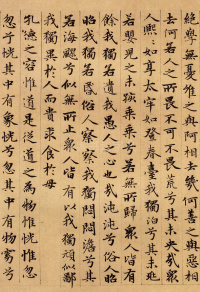 絶學無憂唯之與阿相去幾何善之與惡相
去何若人之所畏不可不畏荒兮其未央哉衆
人熙熙如享太牢如登春臺我獨泊兮其未兆
若嬰兒之未孩乗乗兮若無所歸衆人皆有
餘我獨若遺我愚人之心也哉沌沌兮俗人昭
昭我獨若昏俗人察察我獨悶悶澹兮其
若海飂兮似無所止衆人皆有以我獨頑似鄙
我獨異於人而貴求食於母
孔德之容惟道是從道之為物惟恍惟忽
忽兮恍其中有象恍兮忽其中有物窈兮